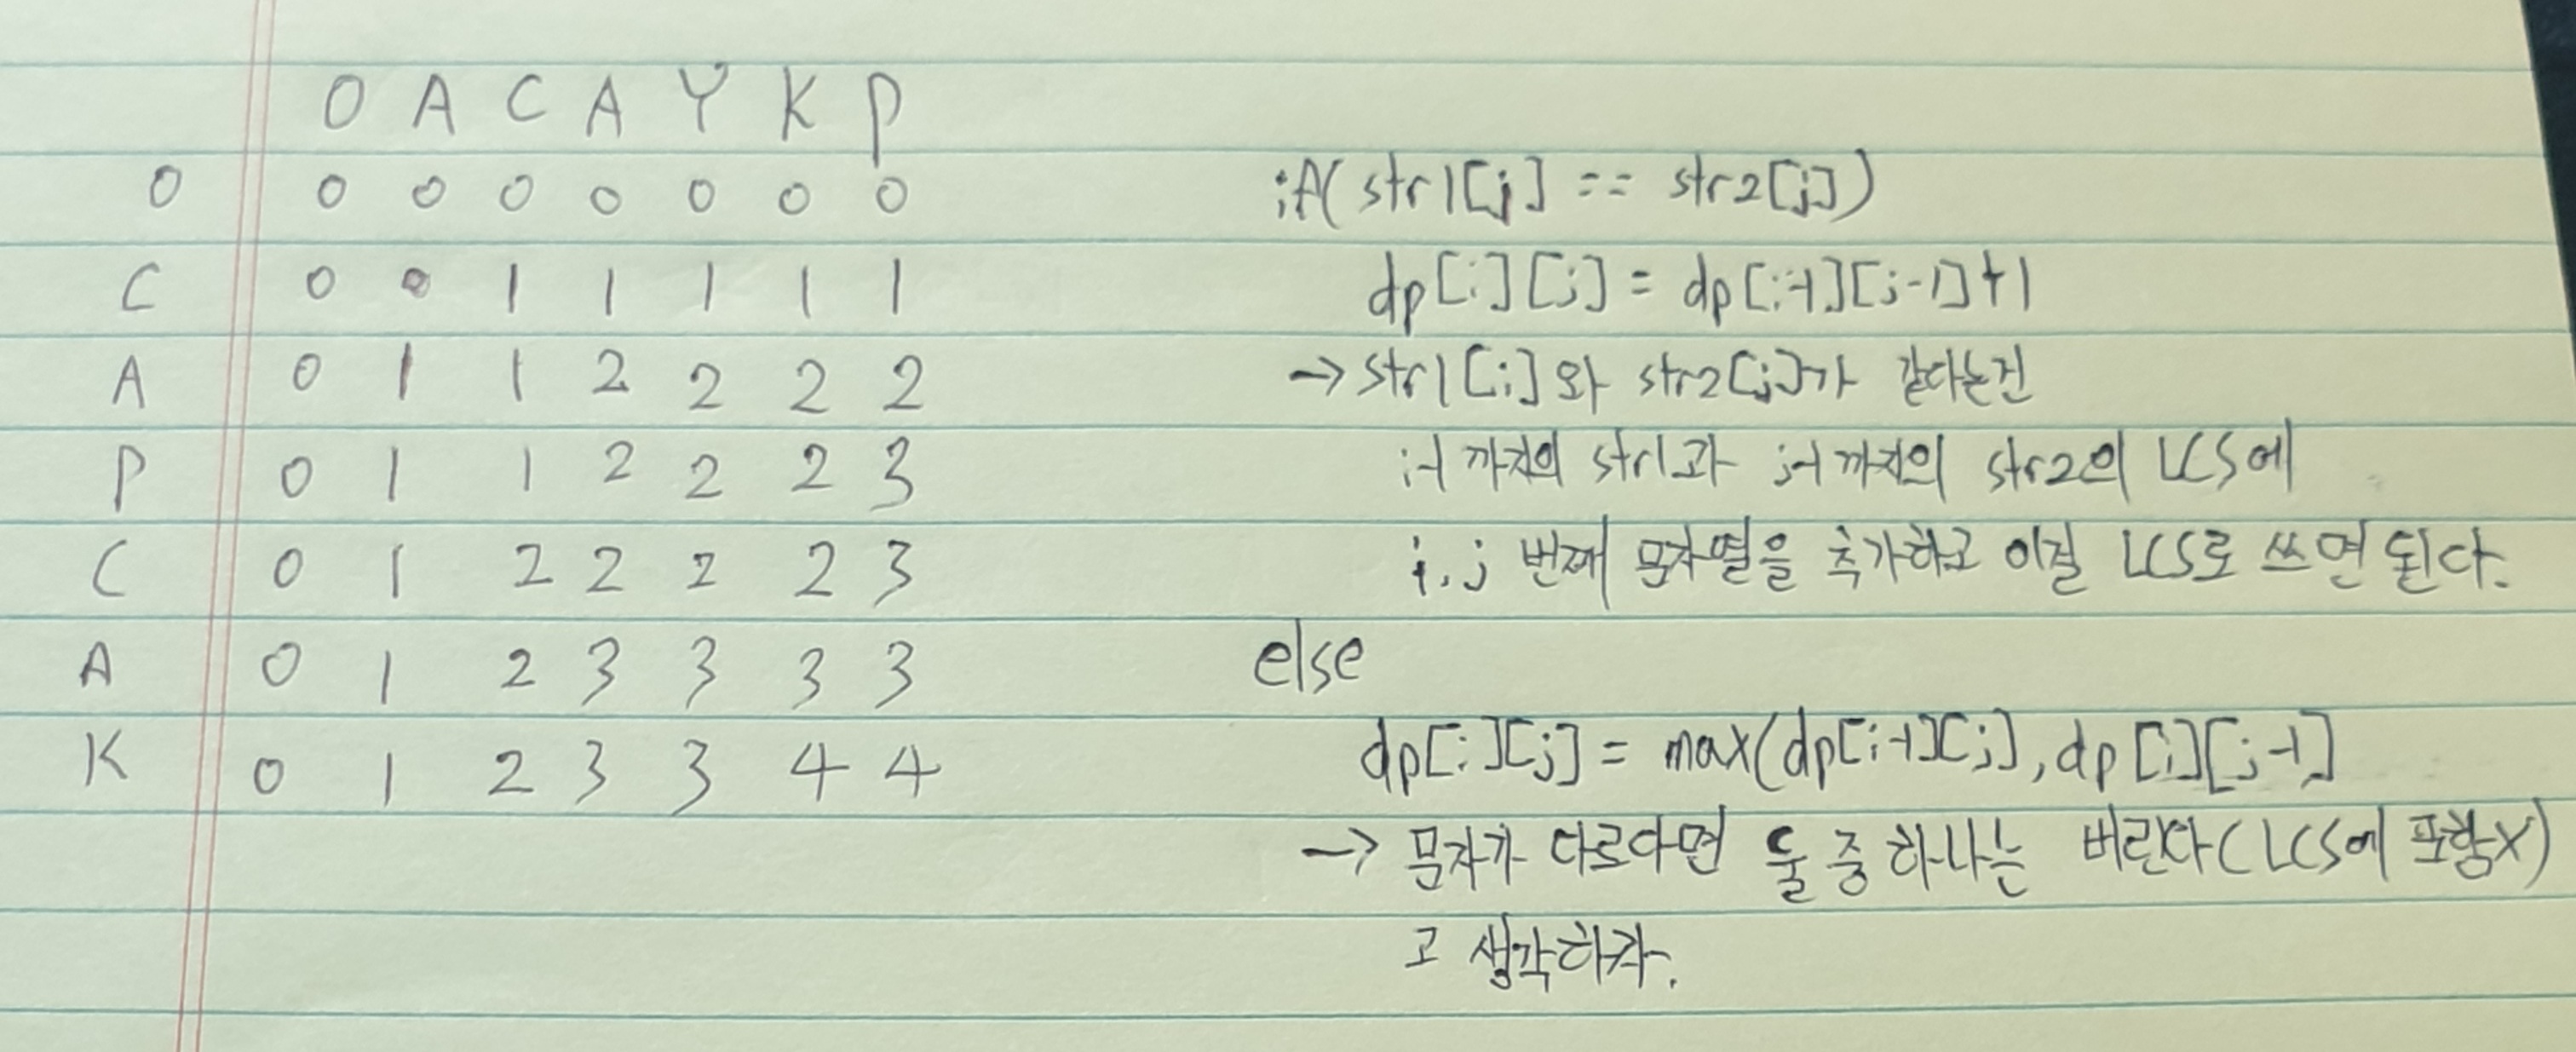 0 A C A Y K P
0 0 0 0 0 0 0 0
C 0 0 1 1 1 1 1
A 0 1 1 2 2 2 2
P 0 1 1 2 2 2 3
C 0 1 2 2 2 2 3
A 0 1 2 3 3 3 3
K 0 1 2 3 3 4 4
if(str1[j] == str2[j])
dp[i][j] = dp[i-1][j-1]+1
→ str1[i]와 str2[j]가 같다는건
i-1까지의 str1과 j-1까지의 str2의 LCS에
i, j 번째 문자열을 추가하고 이걸 LCS로 쓰면 된다.
else
dp[i][j] = max(dp[i-1][j], dp[i][j-1]
→ 문자가 다르다면 둘 중 하나는 버린다(LCS에 포함X)
고 생각하자.